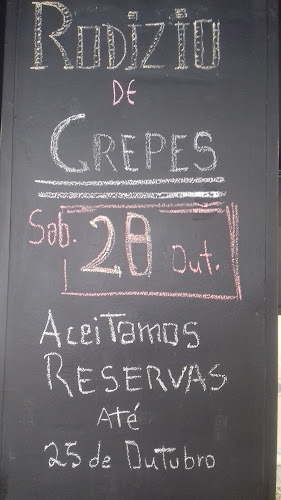 RODIZIO
DE
CREPES
Sab. 28 Out.
Aceitamos
RESERVAS
Até
25 de Outubro